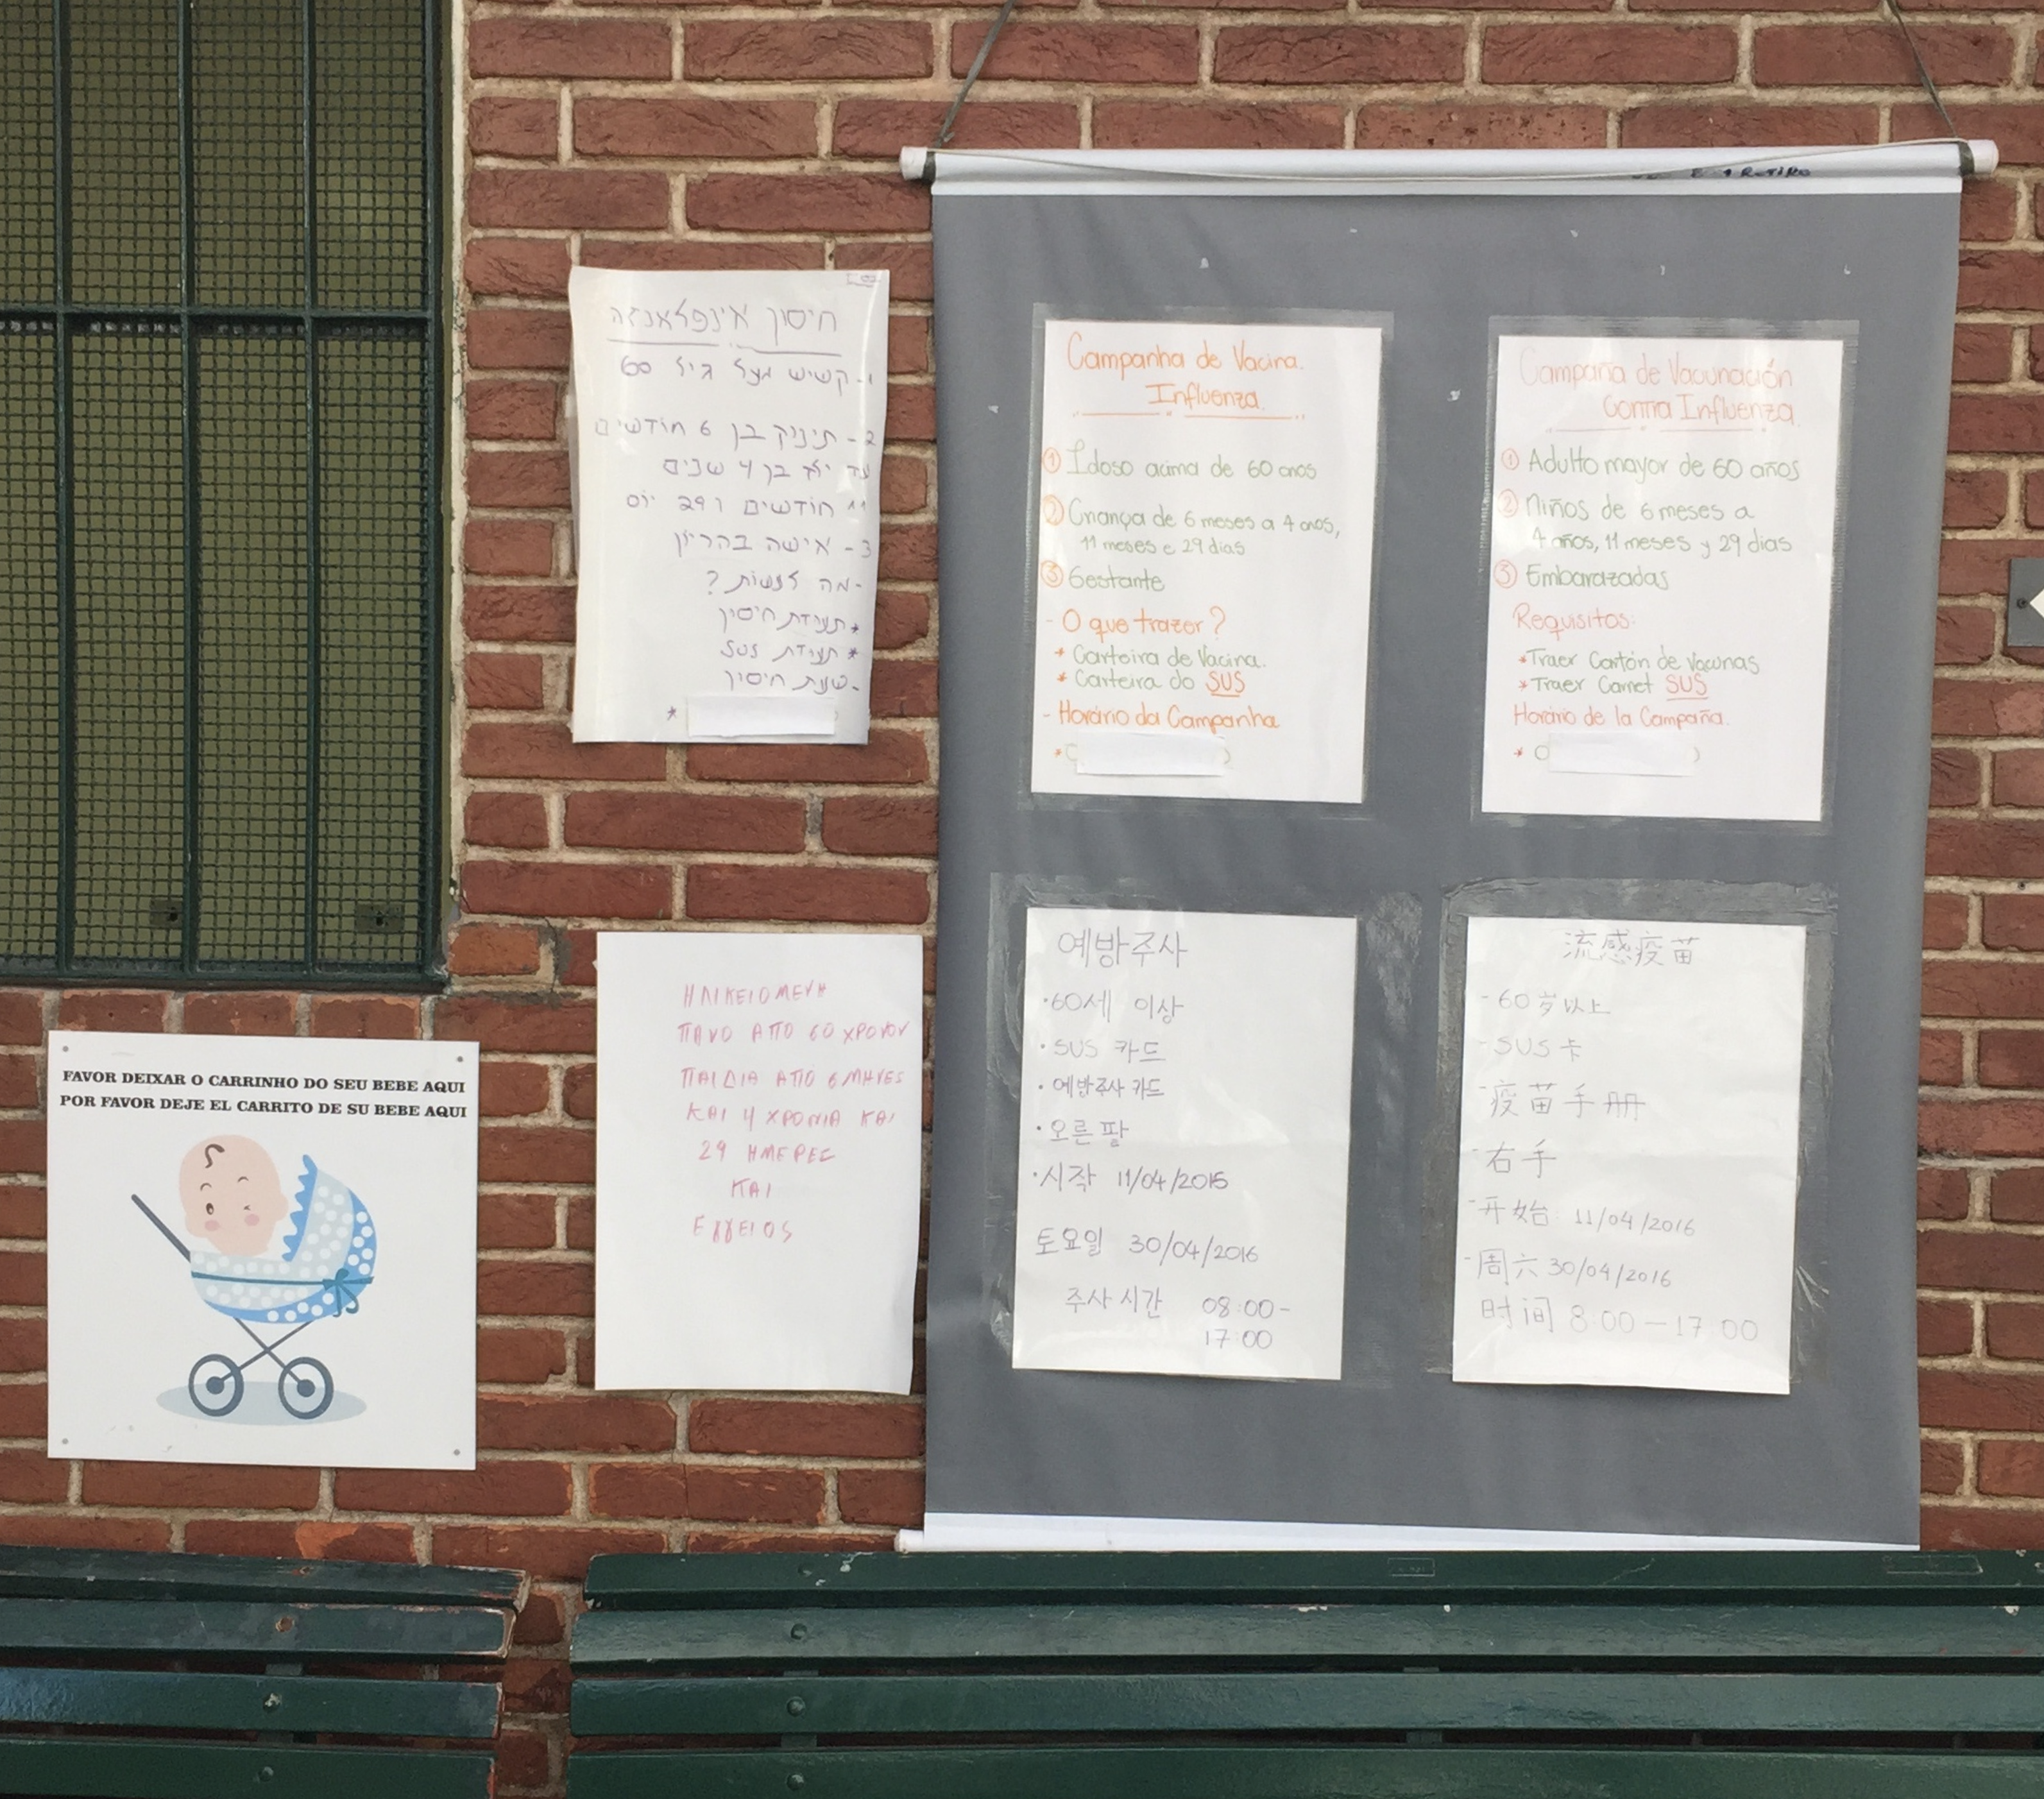 חיסון אינפלואנזה
1- קשיש מעל גיל 60
2- תינוק בן 6 חודשים
עד בן 4 שנים
11 חודשים ו 29 יום
3- אישה בהריון
- מה לעשות?
* תעודת חיסון
* תעודת SUS
- שעת חיסון
*
RETIRO
Campanha de Vacina
Influenza
① Idoso acima de 60 anos
② Criança de 6 meses a 4 anos,
11 meses e 29 dias
③ Gestante
- O que trazer?
* Carteira de Vacina.
* Carteira do SUS
- Horário da Campanha
*
Campaña de Vacunación
Contra Influenza
① Adulto mayor de 60 años
② Niños de 6 meses a
4 años, 11 meses y 29 dias
③ Embarazadas
Requisitos:
* Traer Cartón de Vacunas
* Traer Carnet SUS
Horário de la Campaña.
*
ΗΛΙΚΕΙΟΜΕΝΗ
ΠΑΝΟ ΑΠΟ 60 ΧΡΟΝΟΝ
ΠΑΙΔΙΑ ΑΠΟ 6 ΜΗΝΕΣ
ΚΑΙ 4 ΧΡΟΝΙΑ ΚΑΙ
29 ΗΜΕΡΕΣ
ΚΑΙ
예방주사
· 60세 이상
· SUS 카드
· 예방주사 카드
· 오른팔
· 시작 11/04/2016
토요일 30/04/2016
주사시간 08:00-
17:00
流感疫苗
- 60岁以上
- SUS卡
- 疫苗手册
- 右手
- 开始: 11/04/2016
- 周六 30/04/2016
时间 8:00-17:00
FAVOR DEIXAR O CARRINHO DO SEU BEBE AQUI
POR FAVOR DEJE EL CARRITO DE SU BEBE AQUI